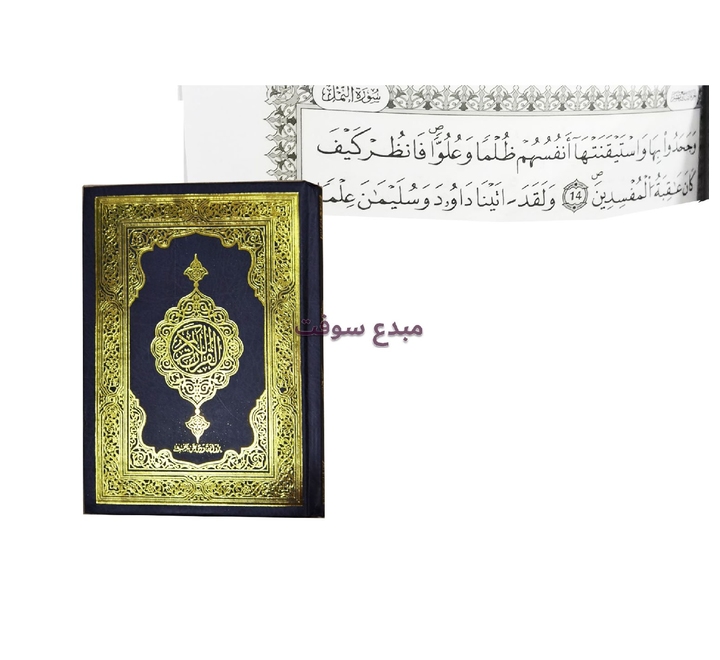 سورة النمل
وَجَحَدُواْ بِهَا وَاسْتَيْقَنَتْهَآ أَنفُسُهُمْ ظُلْماً وَعُلُوّاًۖ فَانظُرْ كَيْفَ
كَانَ عَٰقِبَةُ اُ۬لْمُفْسِدِينَۖ 14 وَلَقَدَ اٰتَيْنَا دَاوُۥدَ وَسُلَيْمَٰنَ عِلْماٗ
مبدع سوفت
القرآن الكريم